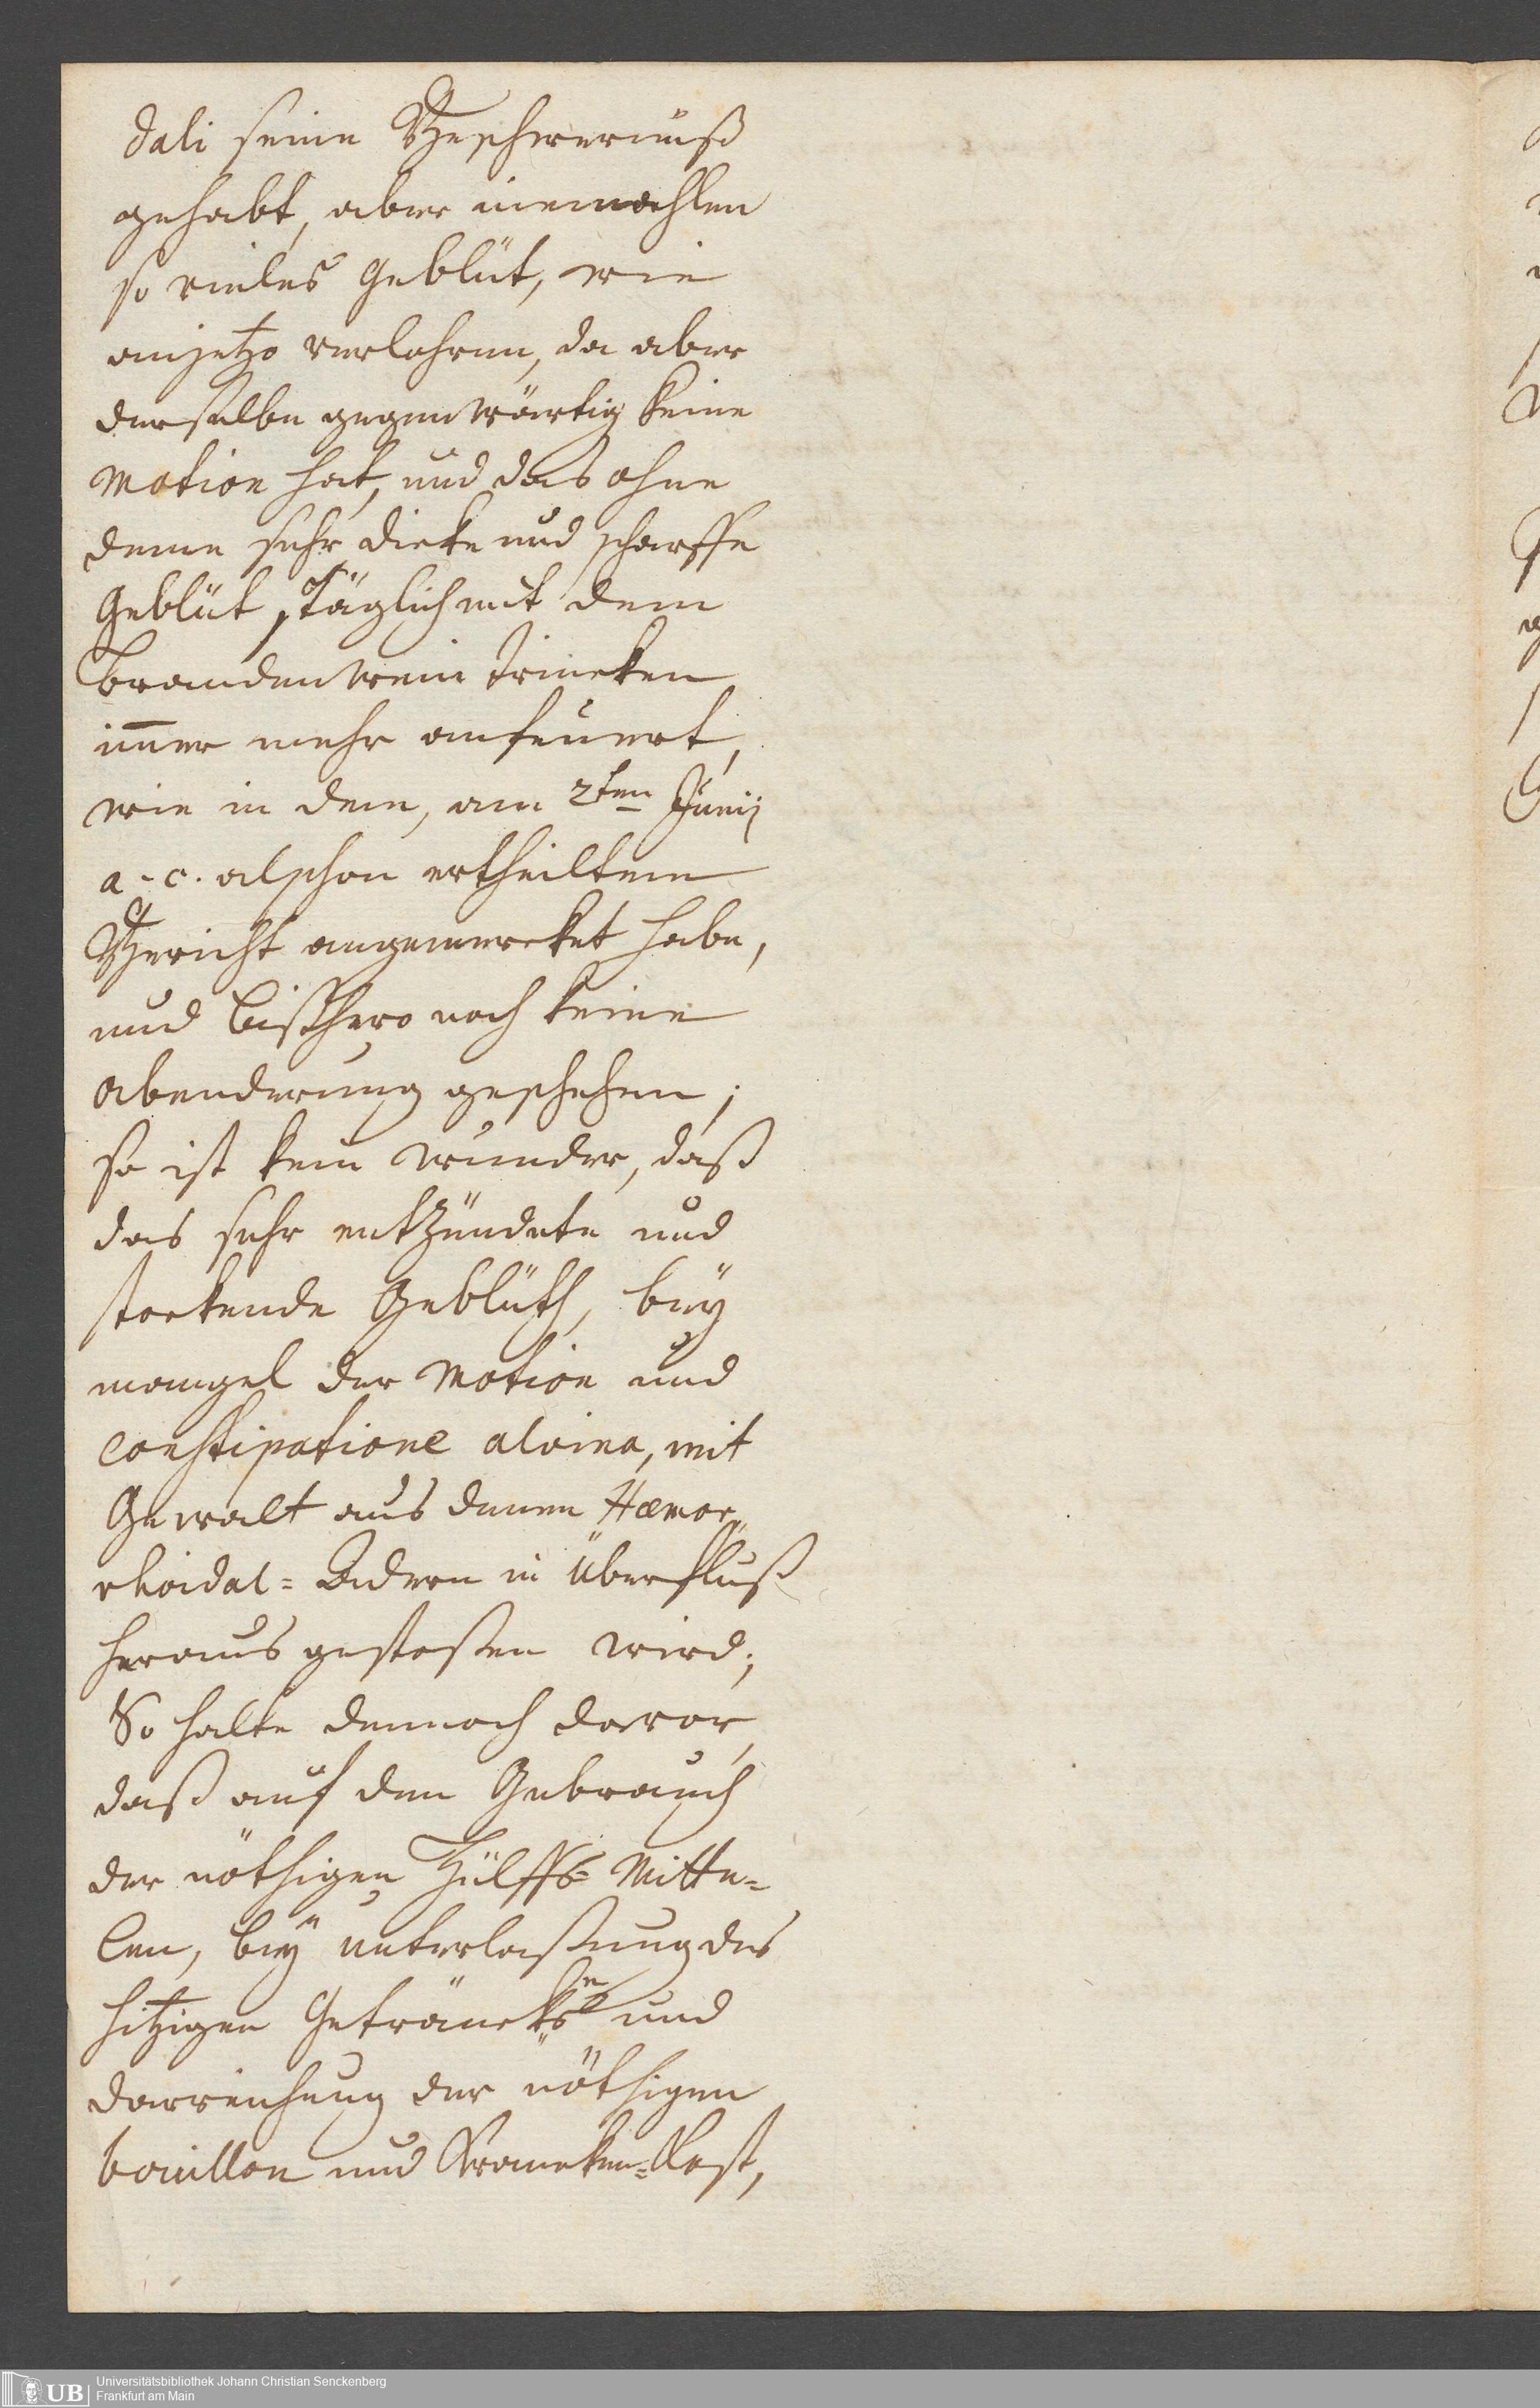 dali seine Beschwernuß
gehabt, aber niemahlen
so vieles Geblüt, wie
anjetzo verlohren, da aber
derselbe gegenwärtig keine
Motion hat, und das ohne
deme sehr dicke und scharffe
Geblüt, täglich mit dem
brandenwein trincken
im̄er mehr anfeuert,
wie in dem, am 2ten Junij
a. c. alschon ertheiltem
Bericht angemercket habe,
und bißhero noch keine
abenderung geschehen;
so ist kein wunder, daß
das sehr entzündete und
stockende Geblüth, bey
mangel der Motion und
constipatione alvina, mit
Gewalt aus denen Hæmor„
rhoidal= Adern in überfluß
heraus gestoßen wird;
So halte dennoch davor,
daß auf den Gebrauch
der nöthigen Hülffs= Mitte=
len, bey unterlaßung des
hitzigen Geträncks und
darreichung der nöthigen
bouillon und Krancken=Kost,
Universitätsbibliothek Johann Christian Senckenberg
UB Frankfurt am Main